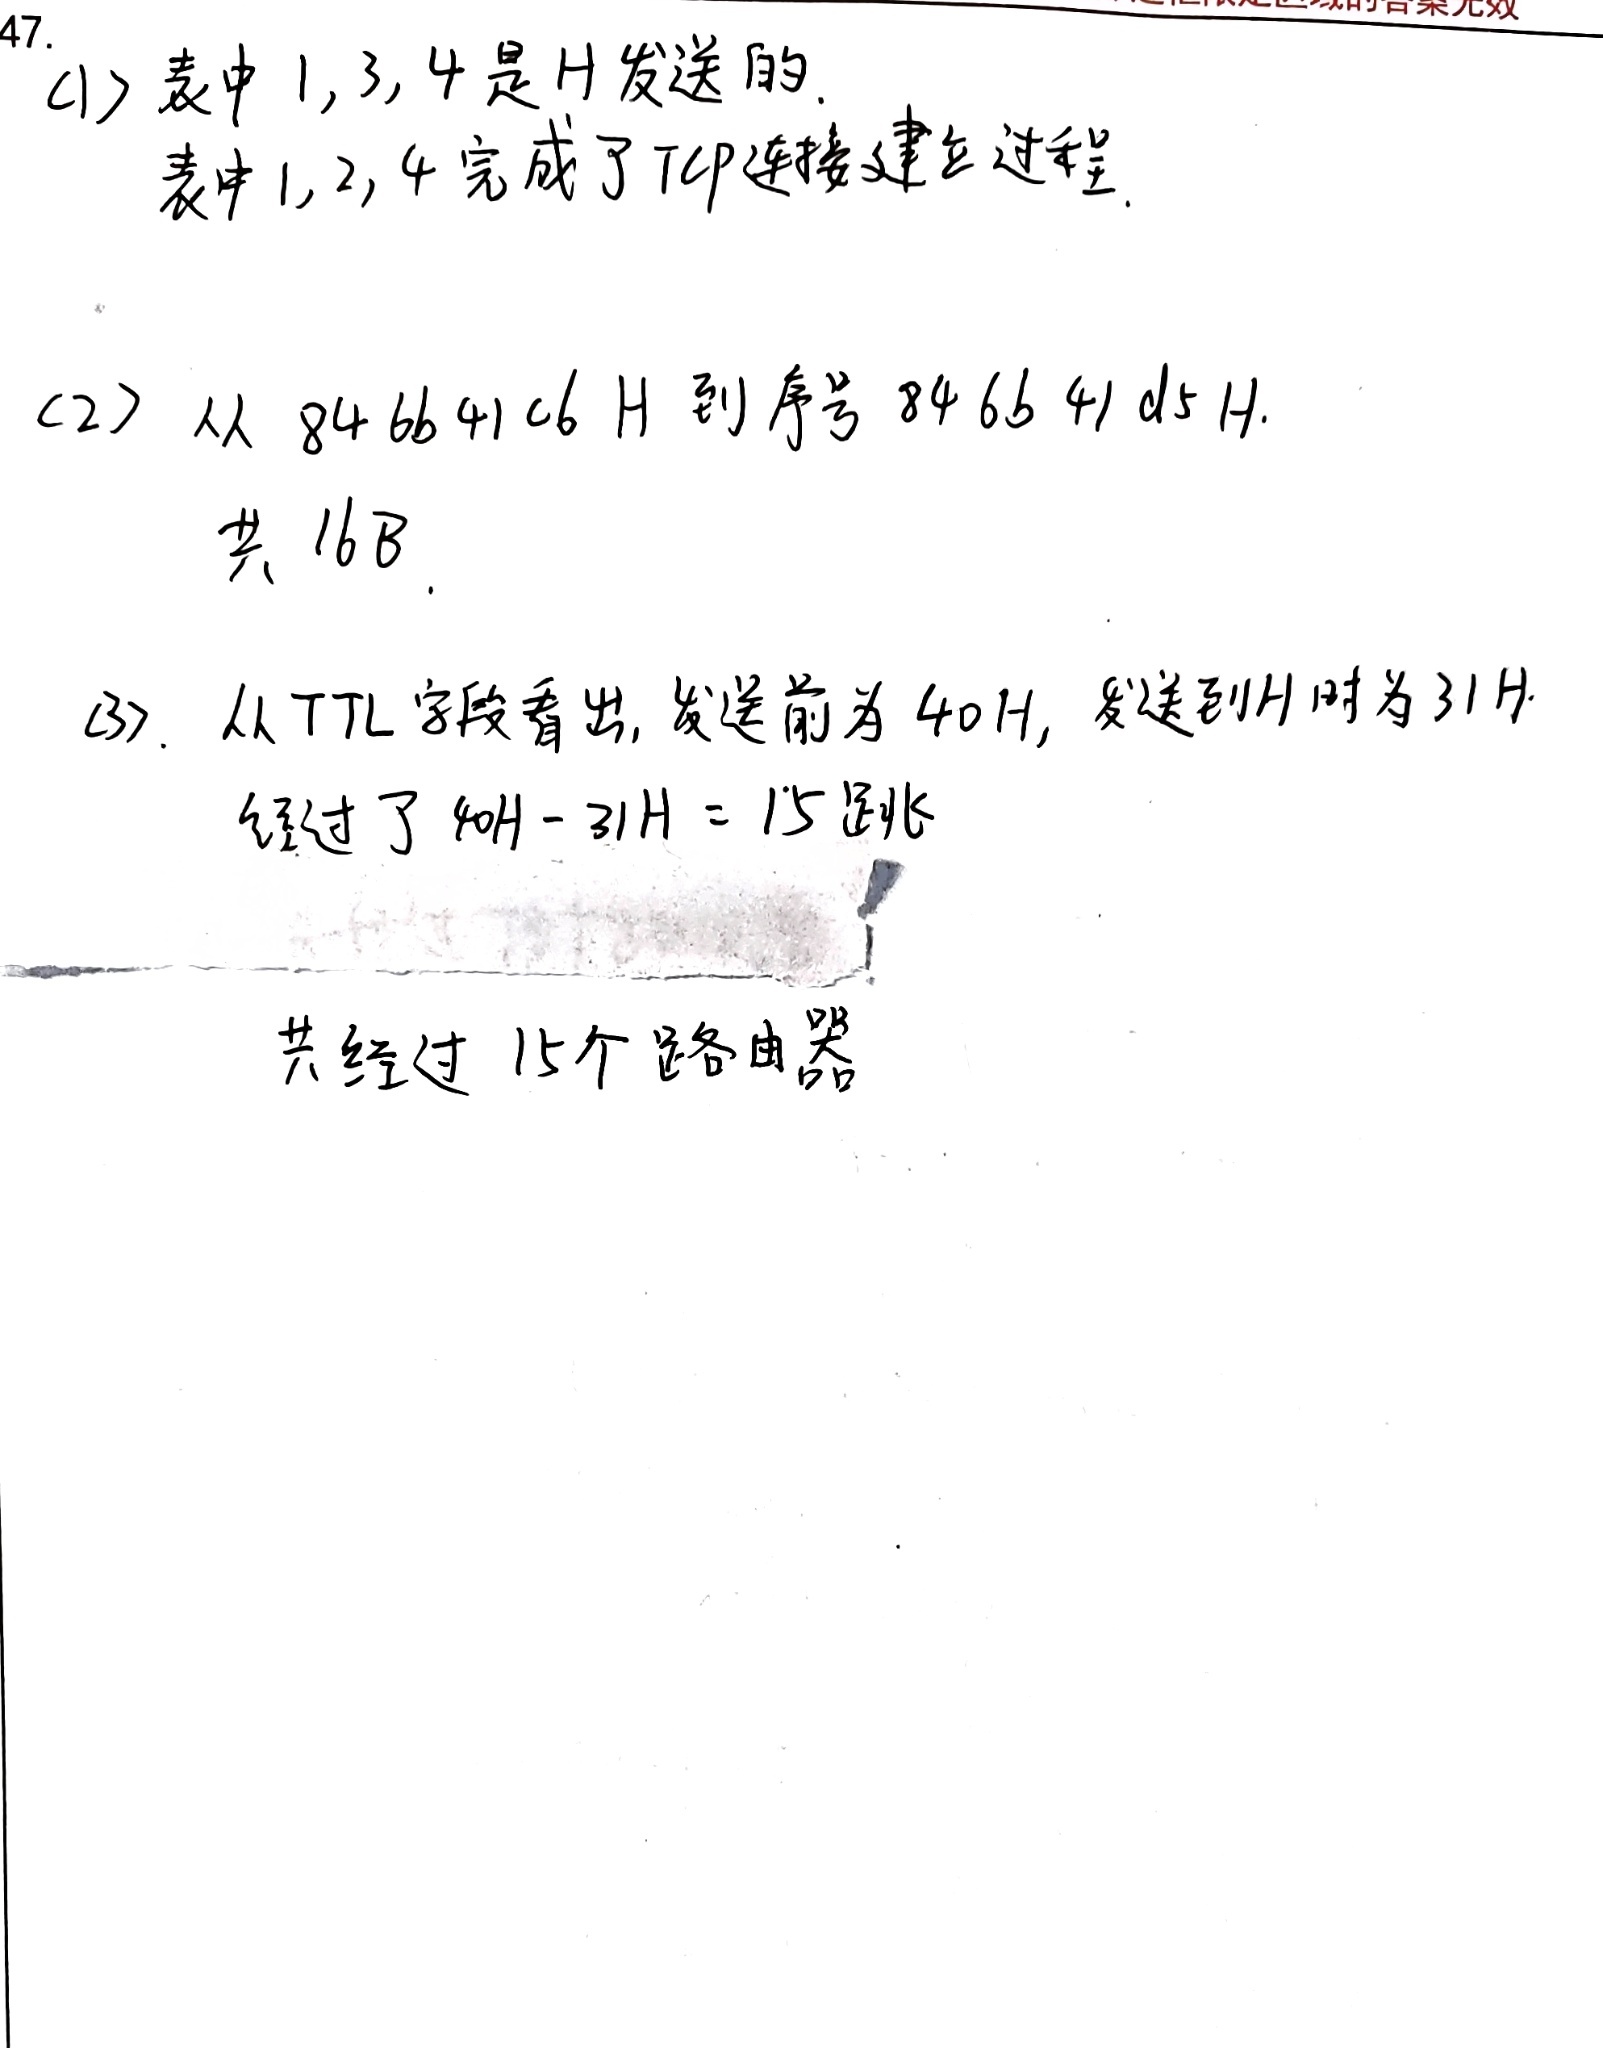 47.
(1) 表中 1, 3, 4 是 H 发送的.
表中 1, 2, 4 完成了 TCP 连接建立过程.
(2) 从 846b41c6 H 到序号 846b41d5H.
共 16B.
(3). 从 TTL 字段看出, 发送前为 40H, 发送到H时为31H.
经过了 40H - 31H = 15跳
共经过 15个路由器